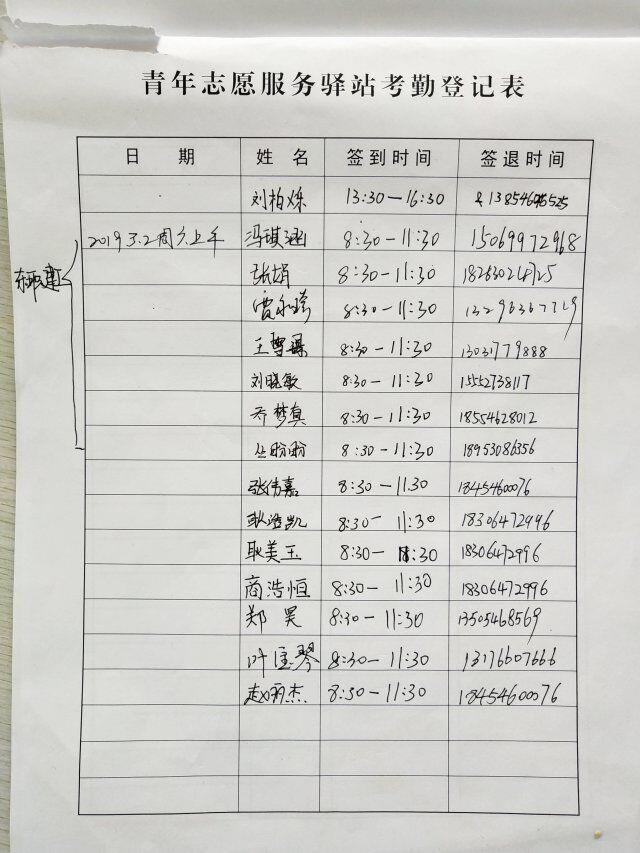 青年志愿服务驿站考勤登记表
日 期 姓 名 签到时间 签退时间
刘柏烁 13:30—16:30
2019 3.2周六上午 冯琪涵 8:30—11:30 15069972968
张娟 8:30—11:30
8:30—11:30 13296367729
王尊 8:30—11:30 13031779888
刘晓敏 8:30—11:30 15552738117
乔梦真 8:30—11:30 18554628012
丛盼盼 8:30—11:30 18953086356
张倩嘉 8:30—11.30 18454600076
耿浩凯 8:30— 11:30 18306472996
耿美玉 8:30— 11:30 18306472996
商浩恒 8:30— 11:30 18306472996
郑昊 8:30—11:30 13505468569
叶宝琴 8:30—11:30 13176607666
赵丽杰 8:30—11:30 18454600076